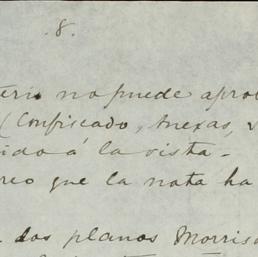 .8.
terio no puede apro
(Confiscado, Anexas, v
ido á la vista.
reo que la nota ha
dos planos Morris